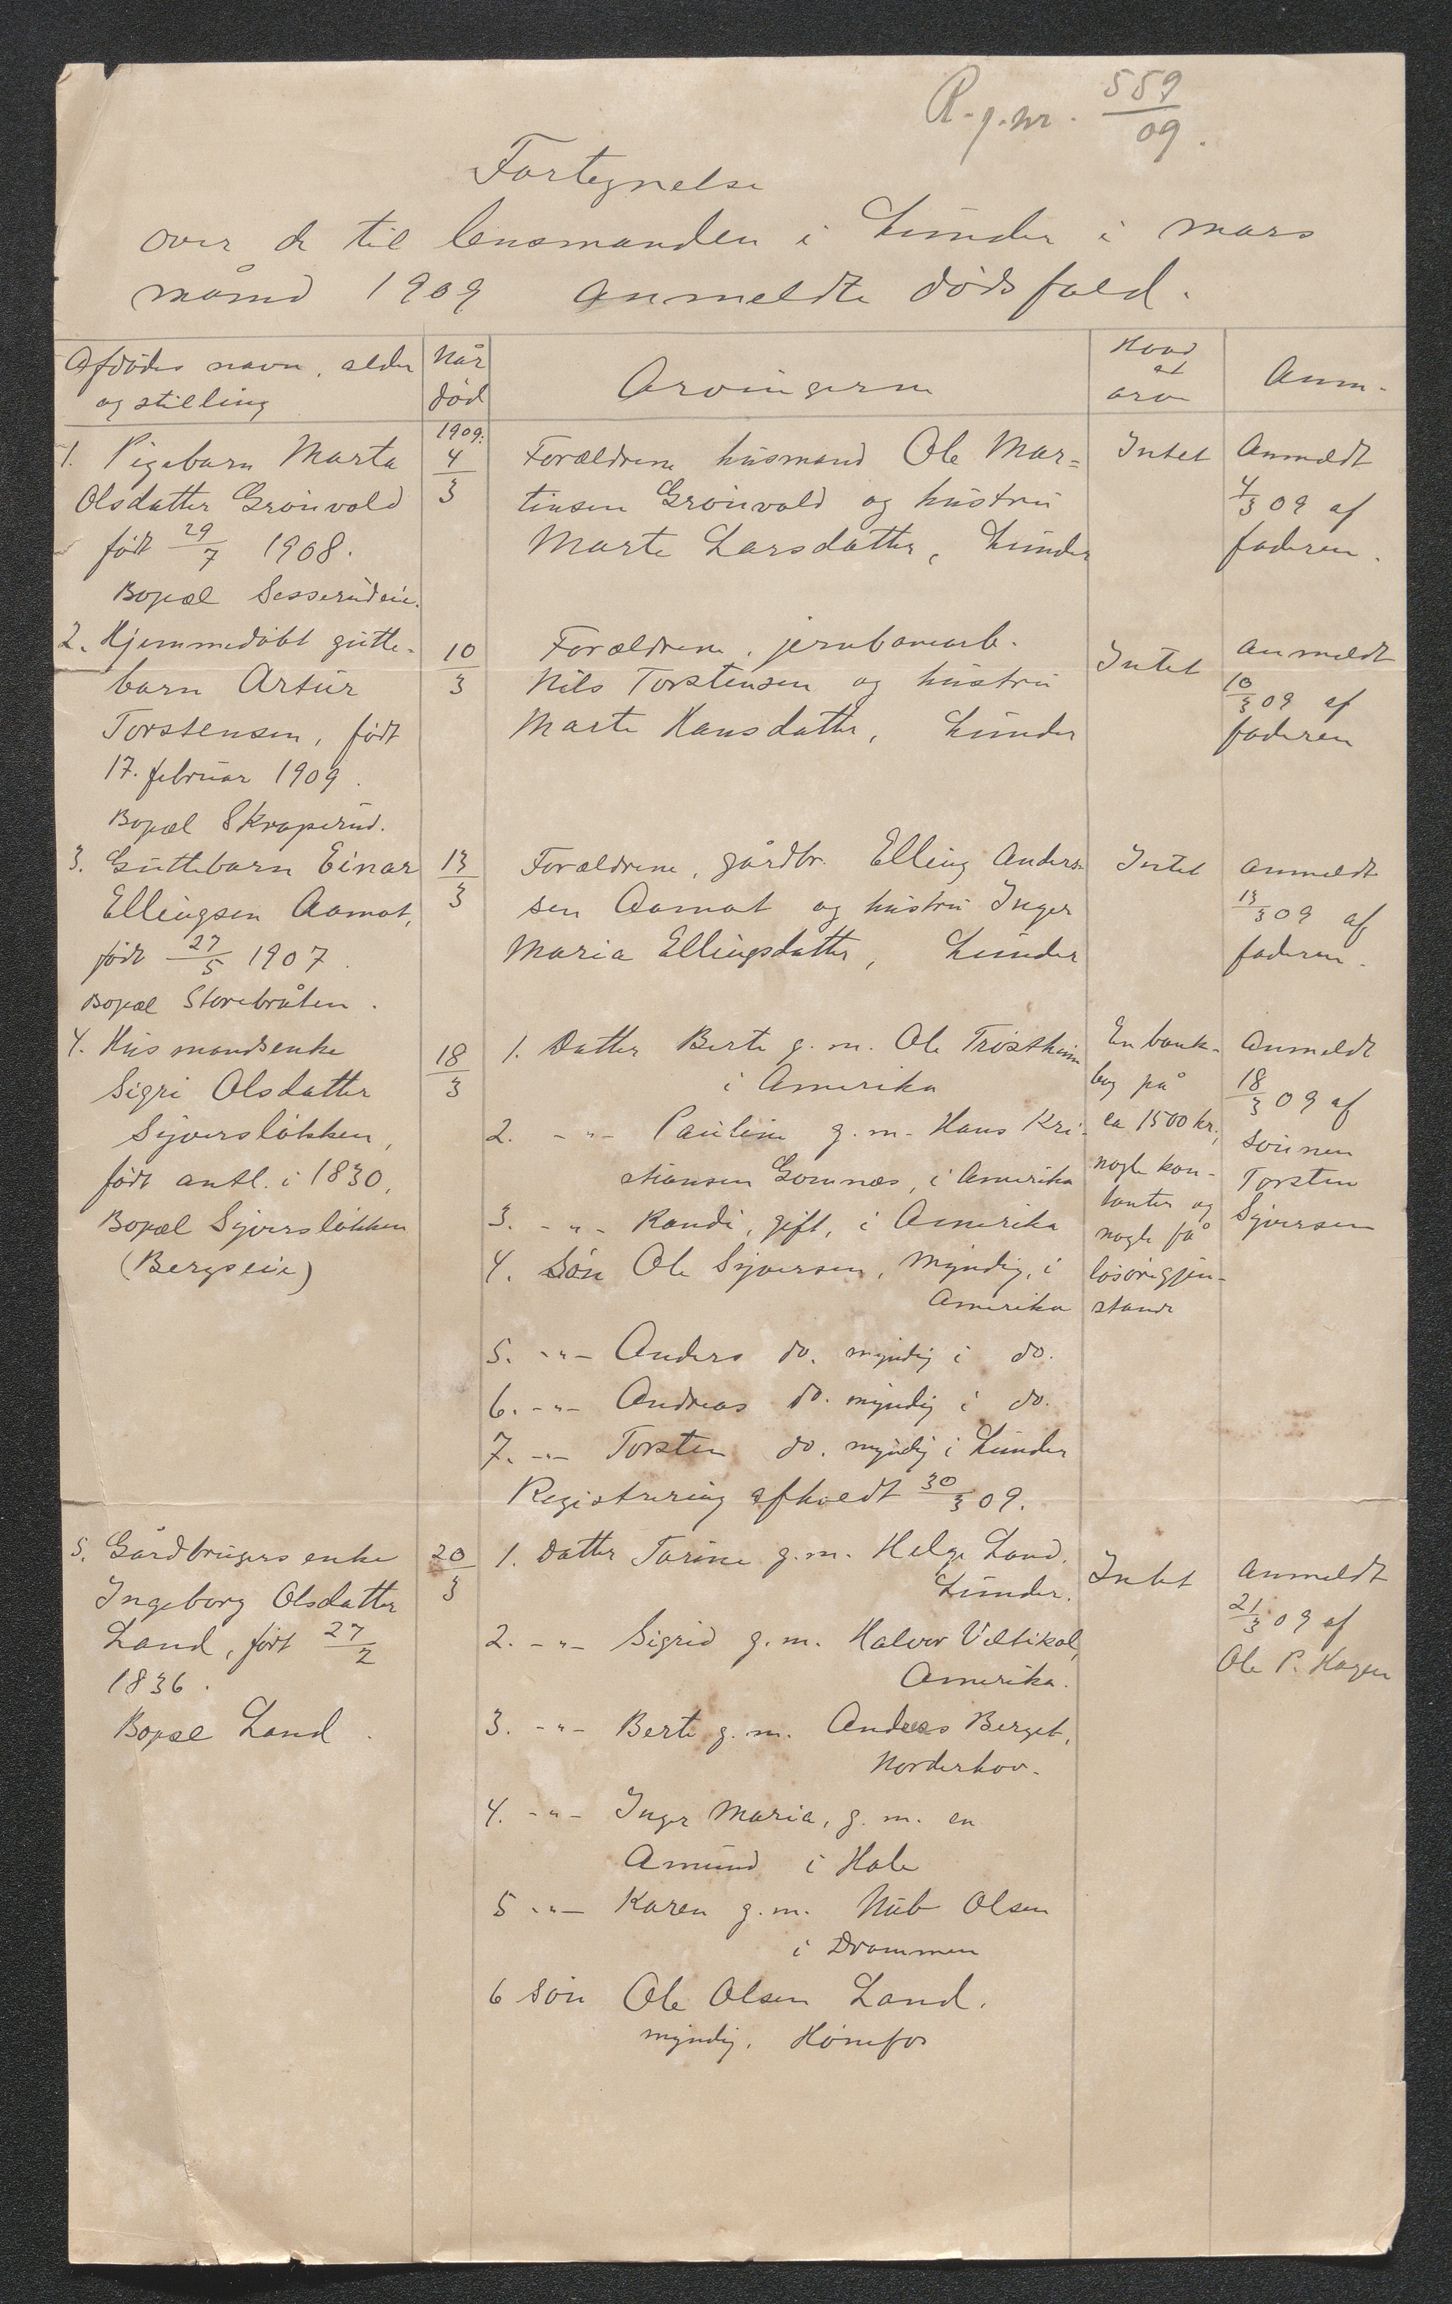 R.g.nr. 559/09.
Fortegnelse
over de til lensmanden i Lunder i mars
måned 1909 anmeldte dødsfald.
Afdødes navn, alder
og stilling
Når
død
Arvingerne
Hvad
at
arve
Anm.
1. Pigebarn Marta
Olsdatter Grønvold
født 29/7 1908.
Bopæl Sesserudeie.
1909.
4/3
Forældrene husmand Ole Mar=
tinsen Grønvold og hustru
Marte Larsdatter, Lunder
Intet
Anmeldt
4/3 09 af
faderen.
2. Hjemmedøbt gutte-
barn Artur
Torstensen, født
17. februar 1909.
Bopæl Skraperud.
10/3
Forældrene, jernbanearb.
Nils Torstensen og hustru
Marte Hansdatter, Lunder
Intet
Anmeldt
10/3 09 af
faderen
3. Guttebarn Einar
Ellingsen Aamot,
født 27/5 1907.
Bopæl Storebråten.
13/3
Forældrene, gårdbr. Elling Anders-
sen Aamot og hustru Inger
Maria Ellingsdatter, Lunder
Intet
Anmeldt
13/3 09 af
faderen.
4. Husmandsenke
Sigri Olsdatter
Sjversløkken,
født antl. i 1830,
Bopæl Sjversløkken
(Bergseie)
18/3
1. Datter Berte g.m. Ole Trøstheim
i Amerika
2. -"- Pauline g.m. Hans Kri-
stiansen Gomnæs, i Amerika
3. -"- Randi, gift, i Amerika
4. Søn Ole Sjversen, myndig, i
Amerika
5. -"- Anders do. myndig i do.
6. -"- Andreas do. myndig i do.
7. -"- Torsten do. myndig i Lunder
Registrering afholdt 30/3 09.
En bank-
bog på
ca 1500 kr.,
nogle kon-
tanter og
nogle få
løsøregjen-
stande
Anmeldt
18/3 09 af
sønnen
Torsten
Sjversen
5. Gårdbrugersenke
Ingeborg Olsdatter
Land, født 27/2
1836.
Bopæl Land.
20/3
1. Datter Turine g.m. Helge Land,
Lunder.
2. -"- Sigrid g.m. Halvor Veltikol,
Amerika.
3. -"- Berte g.m. Andreas Berget,
Norderhov.
4. -"- Inger Maria, g.m. en
Amund i Hole
5 -"- Karen g.m. Nub Olsen
i Drammen
6 Søn Ole Olsen Land,
myndig, Hønefos
Intet
Anmeldt
21/3 09 af
Ole P. Hagen